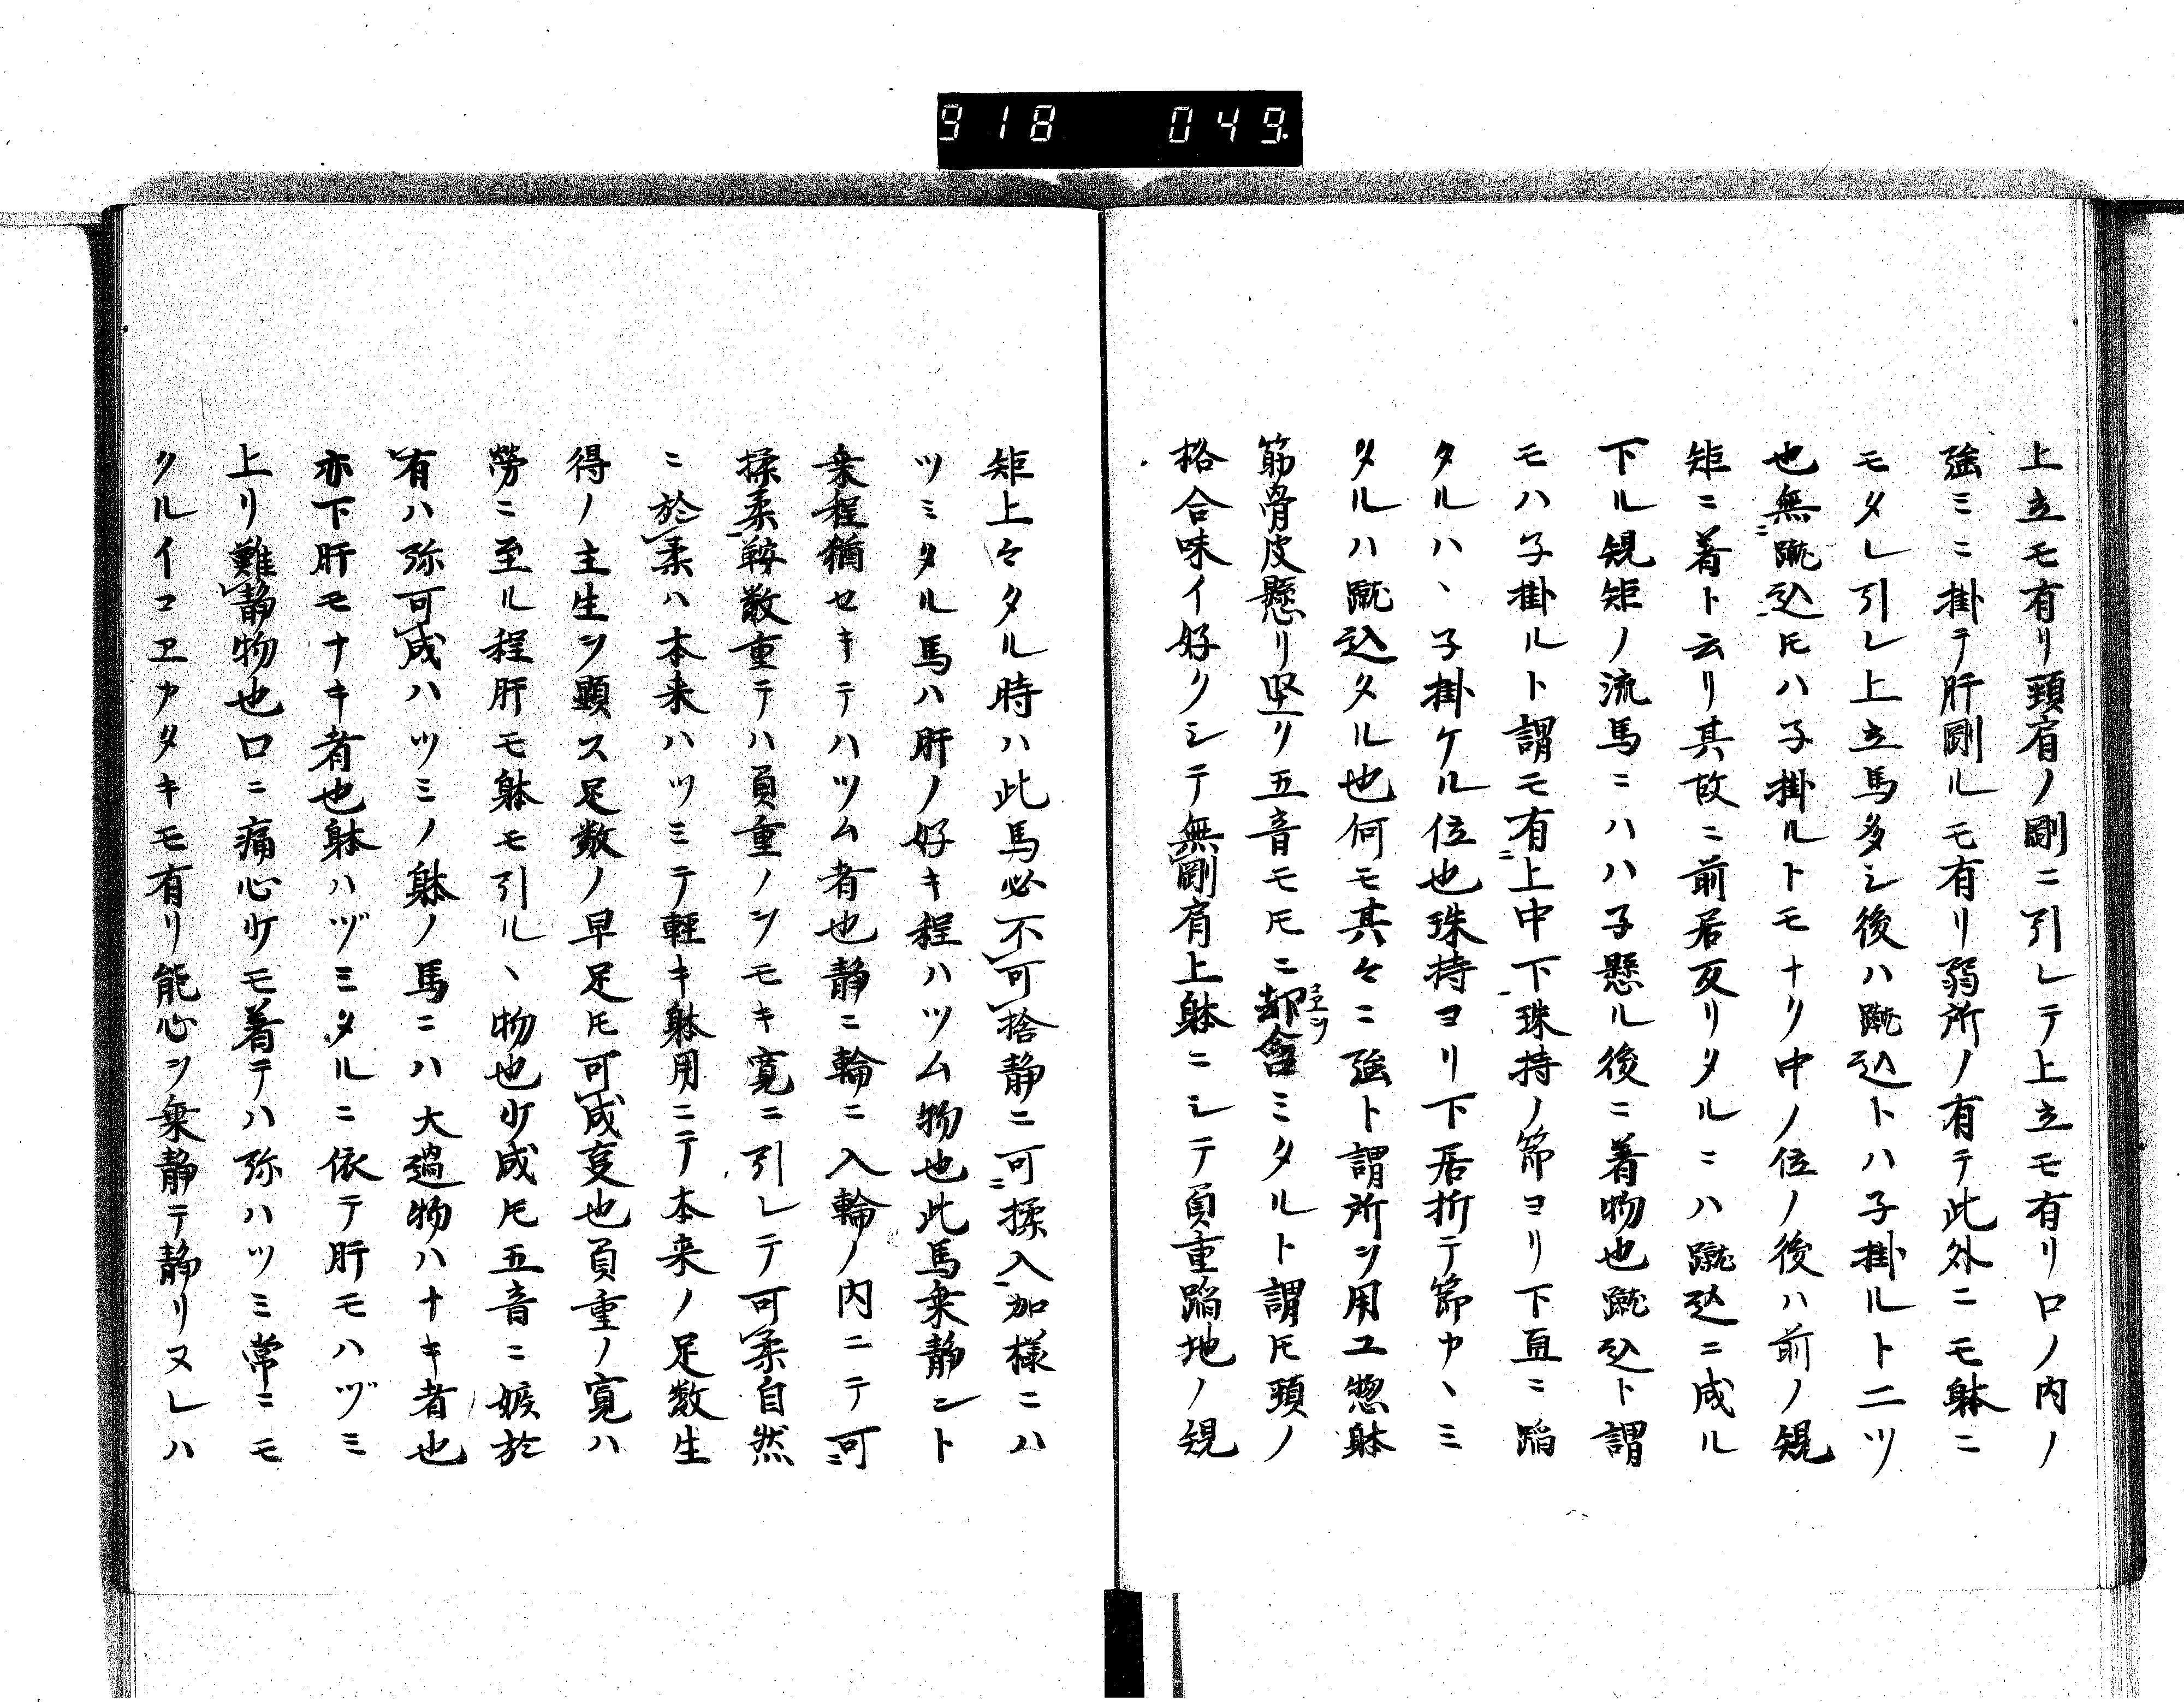 918 049
上立モ有リ頸肩ノ剛ニ引レテ上立モ有リ口ノ内ノ
強ミニ掛テ肝剛ルモ有リ弱所ノ有テ此外ニモ躰ニ
モタレ引レ上立馬多シ後ハ蹴込トハ子掛ルト二ツ
也無蹴込𪜈ハ子掛ルトモナリ中ノ位ノ後ハ前ノ規
矩ニ着ト云リ其故ニ前居反リタルニハ蹴込ニ成ル
下ル規矩ノ流馬ニハハ子懸ル後ニ着物也蹴込ト謂
モハ子掛ルト謂モ有上中下珠持ノ節ヨリ下直ニ蹈
タルハヽ子掛ケル位也珠持ヨリ下居折テ節カヽミ
タルハ蹴込タル也何モ其々ニ強ト謂所ヲ用ユ惣躰
筋骨皮懸リ堅リ五音モ𪜈ニ却含ミタルト謂𪜈頸ノ
格合味イ好クシテ無剛肩上躰ニシテ負重蹈地ノ規
矩上々タル時ハ此馬必不可捨静ニ可揉入加様ニハ
ツミタル馬ハ肝ノ好キ程ハツム物也此馬乗静シト
乗程猶セキテハツム者也静ニ輪ニ入輪ノ内ニテ可
揉柔鞍数重テハ負重ノシモキ寛ニ引レテ可柔自然
ニ於柔ハ本来ハツミテ軽キ躰用ニテ本来ノ足数生
得ノ主生ヲ顕ス足数ノ早足𪜈可成変也負重ノ寛ハ
労ニ至ル程肝モ躰モ引ルヽ物也少成𪜈五音ニ嫉於
有ハ弥可成ハツミノ躰ノ馬ニハ大過物ハナキ者也
亦下肝モナキ者也躰ハヅミタルニ依テ肝モハヅミ
上リ難静物也口ニ痛心少モ着テハ弥ハツミ常ニモ
クルイコヱカタキモ有リ能心ヲ乗静テ静リヌレハ